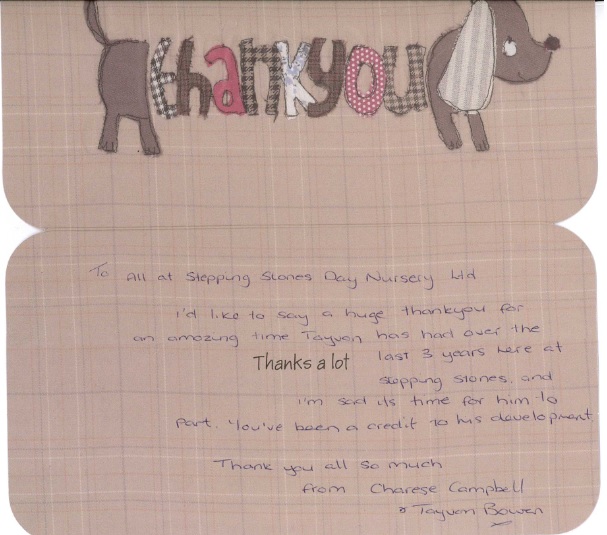 thankyou
To All at Stepping Stones Day Nursery Ltd
i'd like to say a huge thankyou for
an amazing time Tayvon has had over the
Thanks a lot last 3 years here at
stepping stones, and
i'm sad its time for him to
part. You've been a credit to his development
Thank you all so much
from Charese Campbell
& Tayvon Bowen